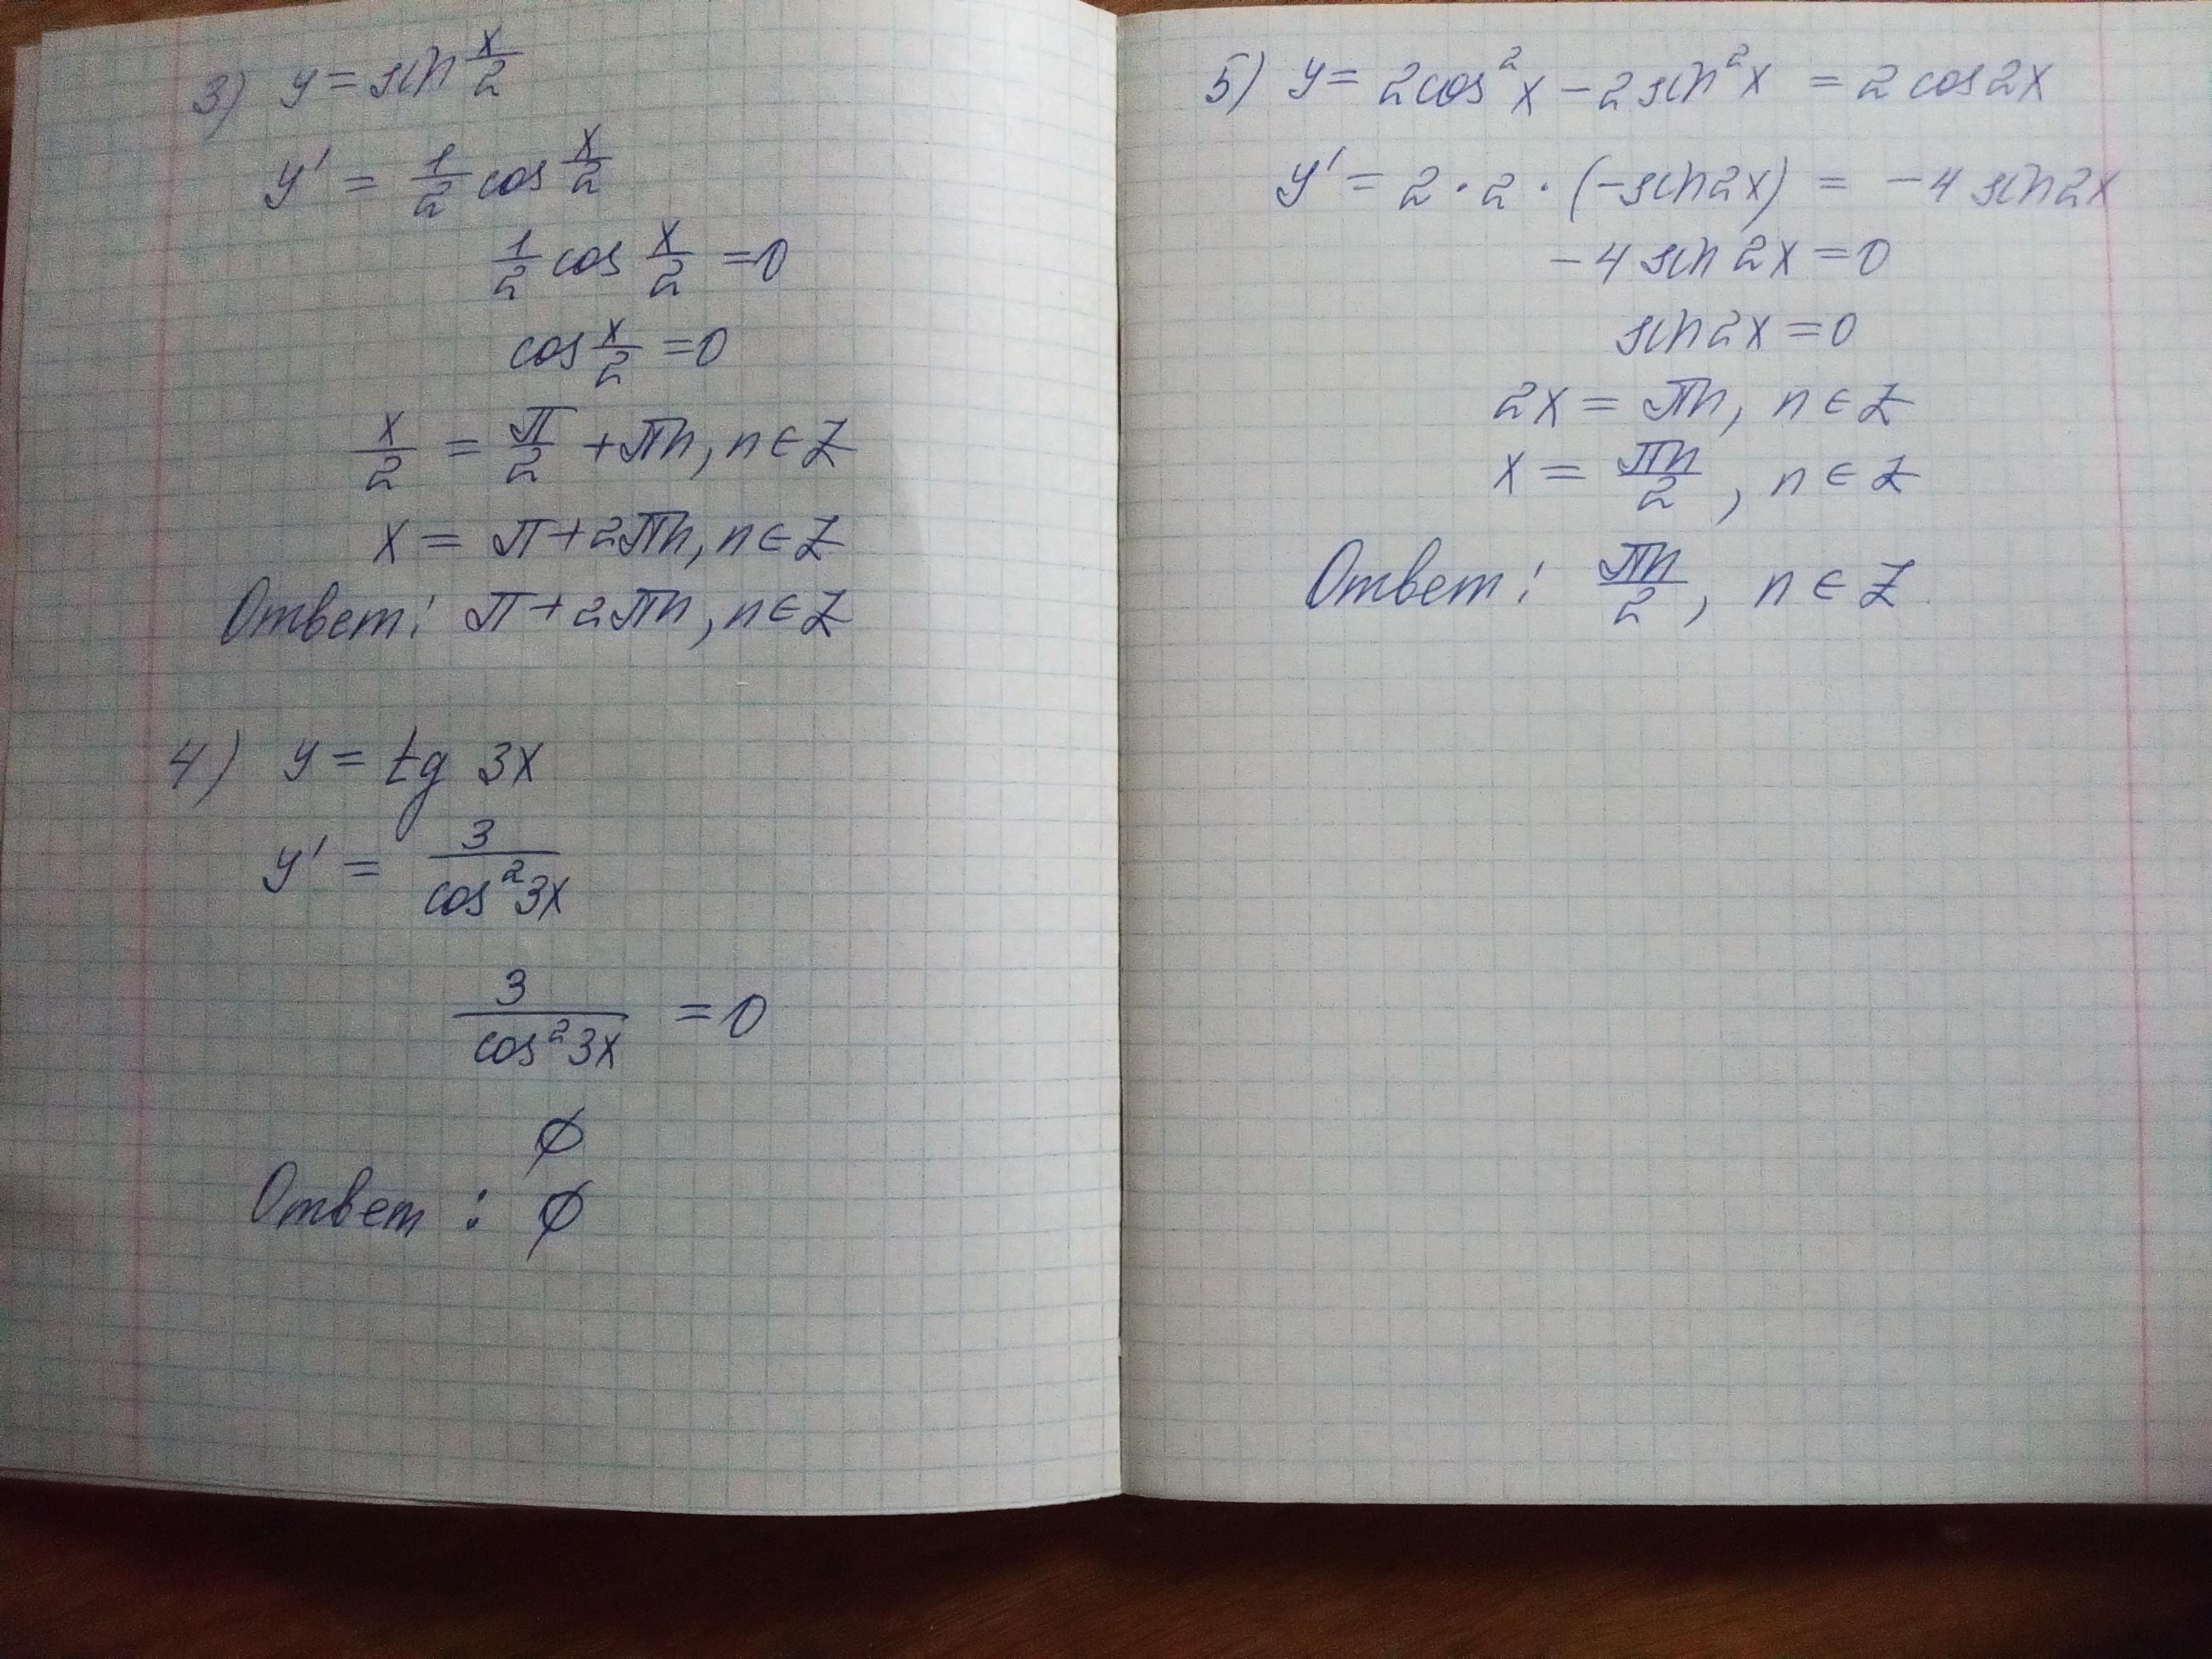 3) y = sin x/2
y' = 1/2 cos x/2
1/2 cos x/2 = 0
cos x/2 = 0
x/2 = π/2 + πn, n ∈ Z
x = π + 2πn, n ∈ Z
Ответ: π + 2πn, n ∈ Z
4) y = tg 3x
y' = 3/cos² 3x
3/cos² 3x = 0
∅
Ответ: ∅
5) y = 2cos² x − 2sin² x = 2 cos 2x
y' = 2 · 2 · (−sin 2x) = −4 sin 2x
−4 sin 2x = 0
sin 2x = 0
2x = πn, n ∈ Z
x = πn/2, n ∈ Z
Ответ: πn/2, n ∈ Z.